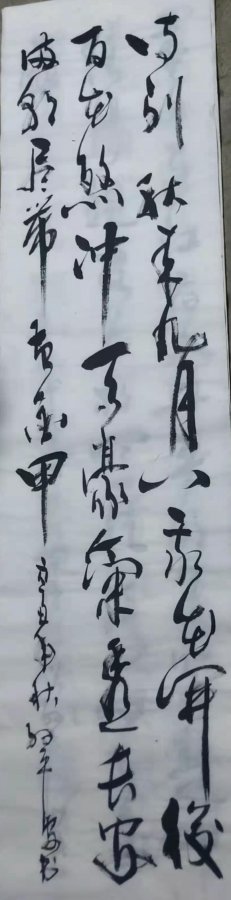 待到秋来九月八我花開後
百花煞冲天香阵透长安
满城尽带黄金甲